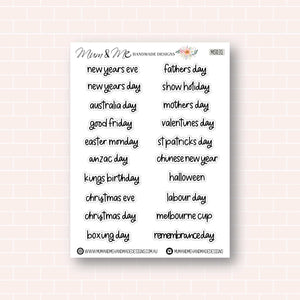 Mum & Me HANDMADE DESIGNS
new years eve
new years day
australia day
good friday
easter monday
anzac day
kings birthday
christmas eve
christmas day
boxing day
fathers day
show holiday
mothers day
valentines day
st patricks day
chinese new year
halloween
labour day
melbourne cup
remembrance day
WWW.MUMANDMEHANDMADEDESIGNS.COM.AU
MUMANDMEHANDMADEDESIGNS